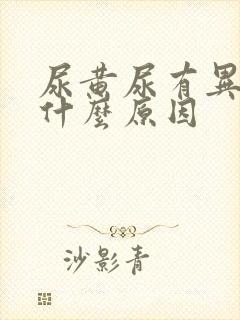 尿黃尿有異
什麼原因
沙影青